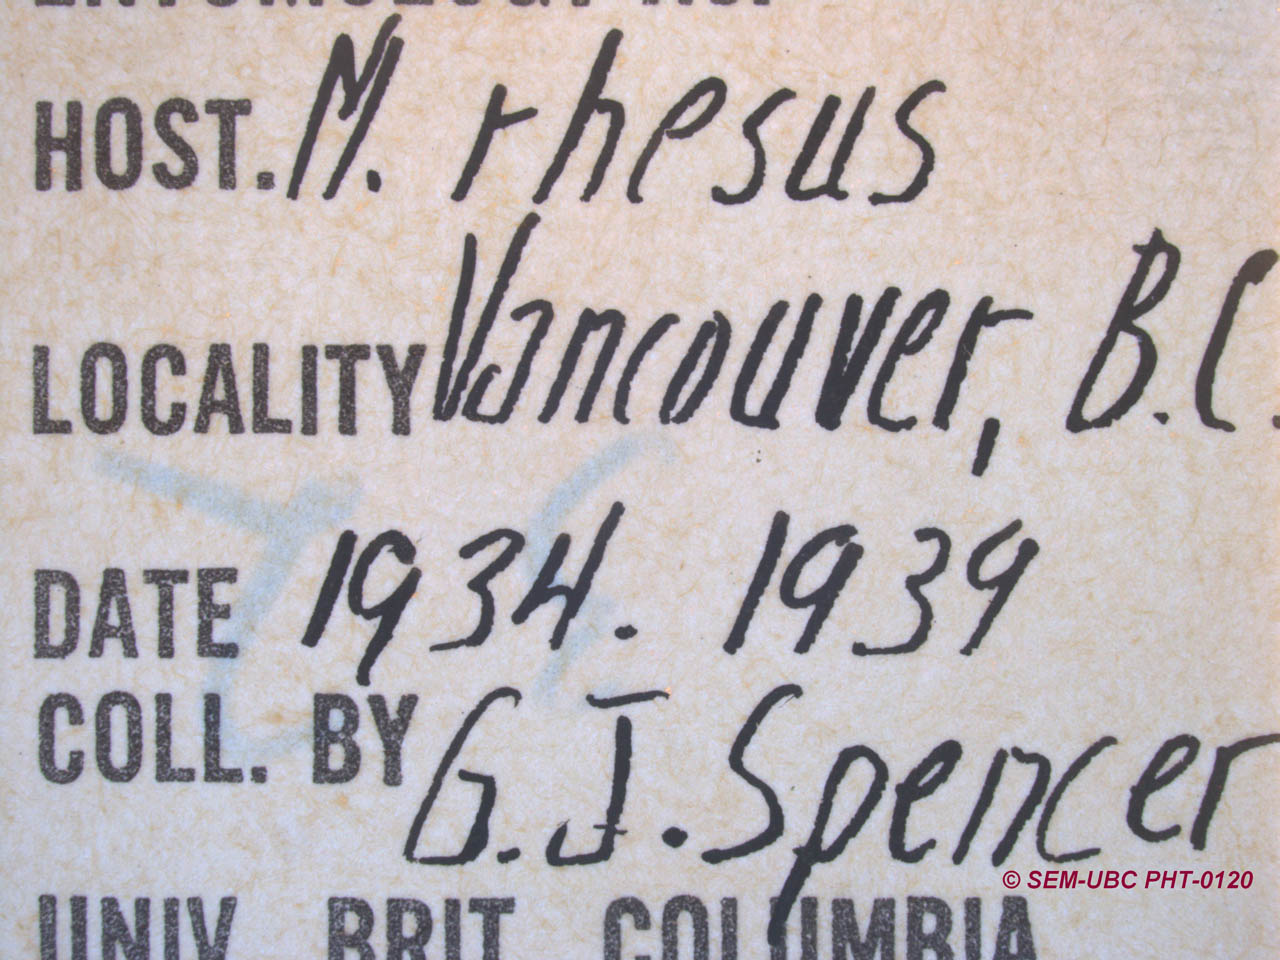 HOST. M. rhesus
LOCALITY Vancouver, B.C.
DATE 1934. 1939
COLL. BY G.J. Spencer
© SEM-UBC PHT-0120
UNIV BRIT COLUMBIA